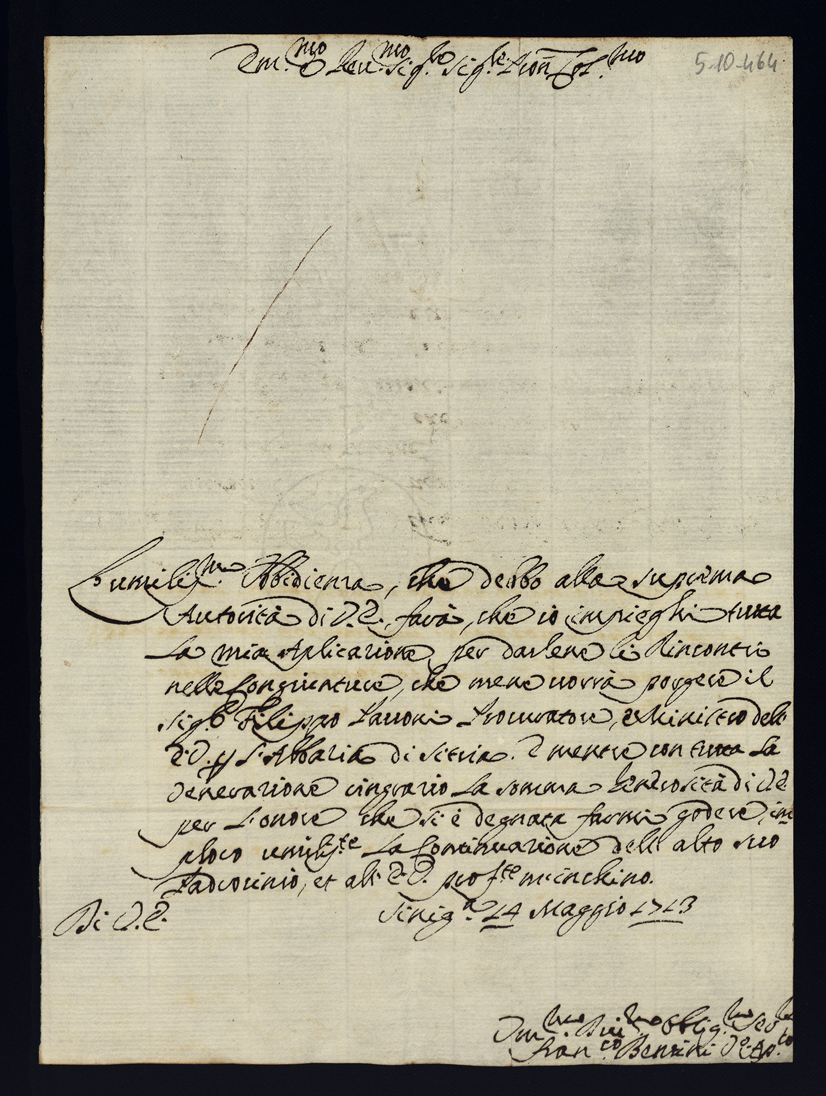 Em.mo e Reu.mo Sig.re Sig.re Pron Col.mo
5-10-464
L'umiliss.ma Obbedienza, che debbo alla suprema
Autorità di V.E. farà, che io impieghi tutta
La mia Aplicazione per darlene li Rincontri
nelle Congiunture, che mene uorrà porgere il
Sig.r Filippo Pauoni Procuratore, e Ministro dell
E.V. p l'Abbazia di Sitria. E mentre con tutta La
Venerazione ringrazio La somma Generosità di V.E.
per L'onore che si è degnata farmi godere, im
ploro umilm.te La Continuazione dell'alto suo
Padrocinio, et all'E.V. prof.te m'inchino.
Di V.E.
Sinig.a 14 Maggio 1713
Um.mo Diu.mo Obblig.mo Seru.re
Fran.co Benzini V.o Ap.co